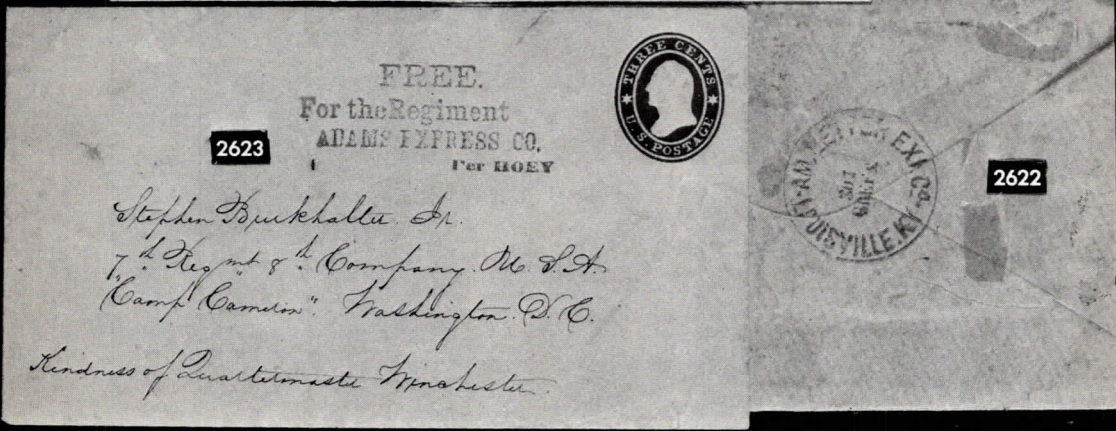 FREE.
For the Regiment
ADAMS EXPRESS CO.
Per HOEY
THREE CENTS
U.S. POSTAGE
2623
Stephen Burkhalter Jr.
7th Regmt 8th Company N.S.A.
"Camp Cameron". Washington. D.C.
Kindness of Quartermaster Winchester.
AM. LETTER EXP. CO.
LOUISVILLE.KY
2622